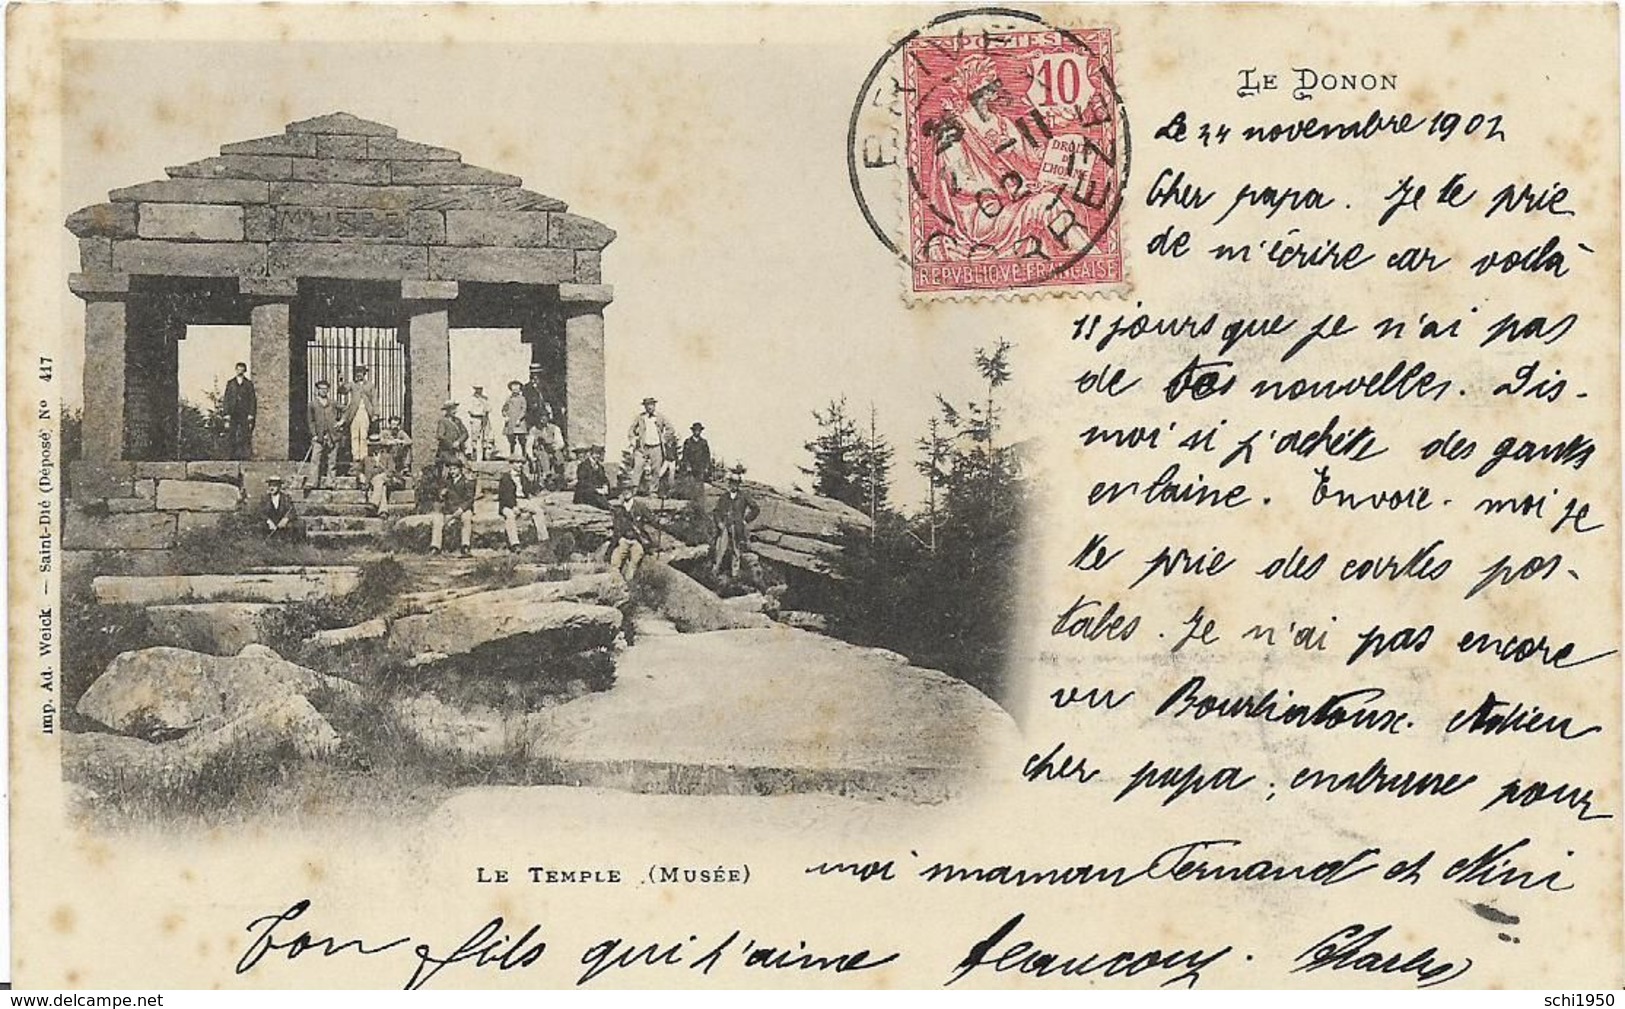 LE DONON
Le 24 novembre 1902
Cher papa. Je te prie
de m'écrire car voilà
15 jours que je n'ai pas
de tes nouvelles. Dis-
moi si j'achète des gants
en laine. Envoie-moi je
te prie des cartes pos-
tales. Je n'ai pas encore
vu Adieu
cher papa, embrasse pour
moi maman Fernand et Nini
Ton fils qui t'aime beaucoup. Charles
LE TEMPLE (MUSÉE)
Imp. Ad. Weick — Saint-Dié (Déposé) No 417
MUSÉE
POSTES
10
DROITS
DE
L'HOMME
REPVBLIQVE FRANÇAISE
BRIVE
11
02
CORREZE
schi1950